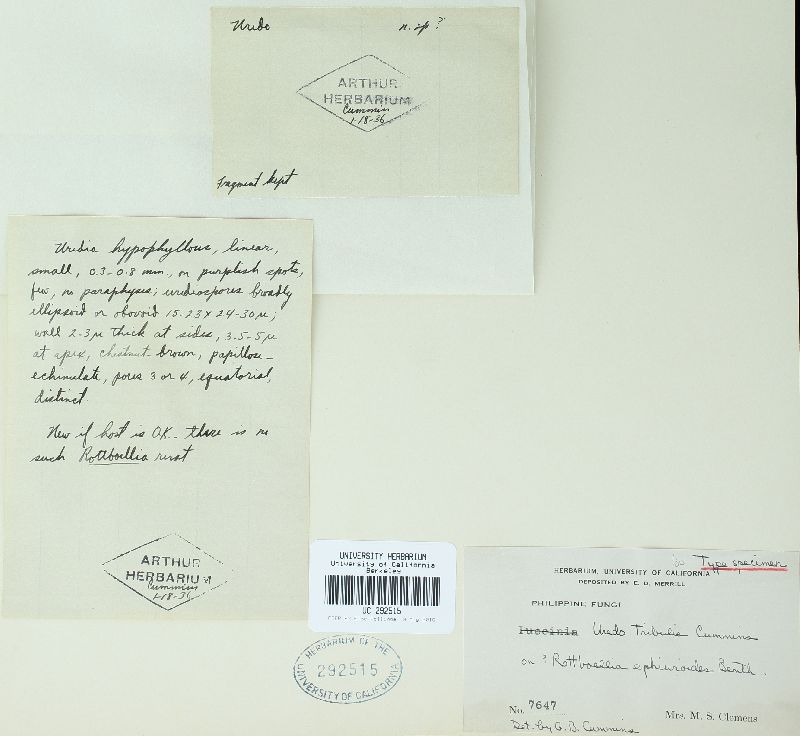 Uredo n. sp ?
ARTHUR
HERBARIUM
Cummins
1-18-36
Fragment kept
Uredia hypophyllous, linear,
small, 0.3-0.8 mm., on purplish spots,
few, no paraphyses; urediospores broadly
ellipsoid or obovoid 15-23 x 24-30 µ;
wall 2-3µ thick at sides, 3.5-5µ
at apex, chestnut-brown, papillose-
echinulate, pores 3 or 4, equatorial,
distinct.
New if host is O.K. - there is no
such Rottboellia rust
ARTHUR
HERBARIUM
Cummins
1-18-36
UNIVERSITY HERBARIUM
University of California
Berkeley
UC 292515
HERBARIUM OF THE
292515
UNIVERSITY OF CALIFORNIA
Type specimen
HERBARIUM, UNIVERSITY OF CALIFORNIA
DEPOSITED BY E. D. MERRILL
PHILIPPINE FUNGI
Puccinia Uredo Tribulis Cummins
on ? Rottboellia ophiuroides Benth.
No. 7647 Mrs. M. S. Clemens
Det. by G. B. Cummins